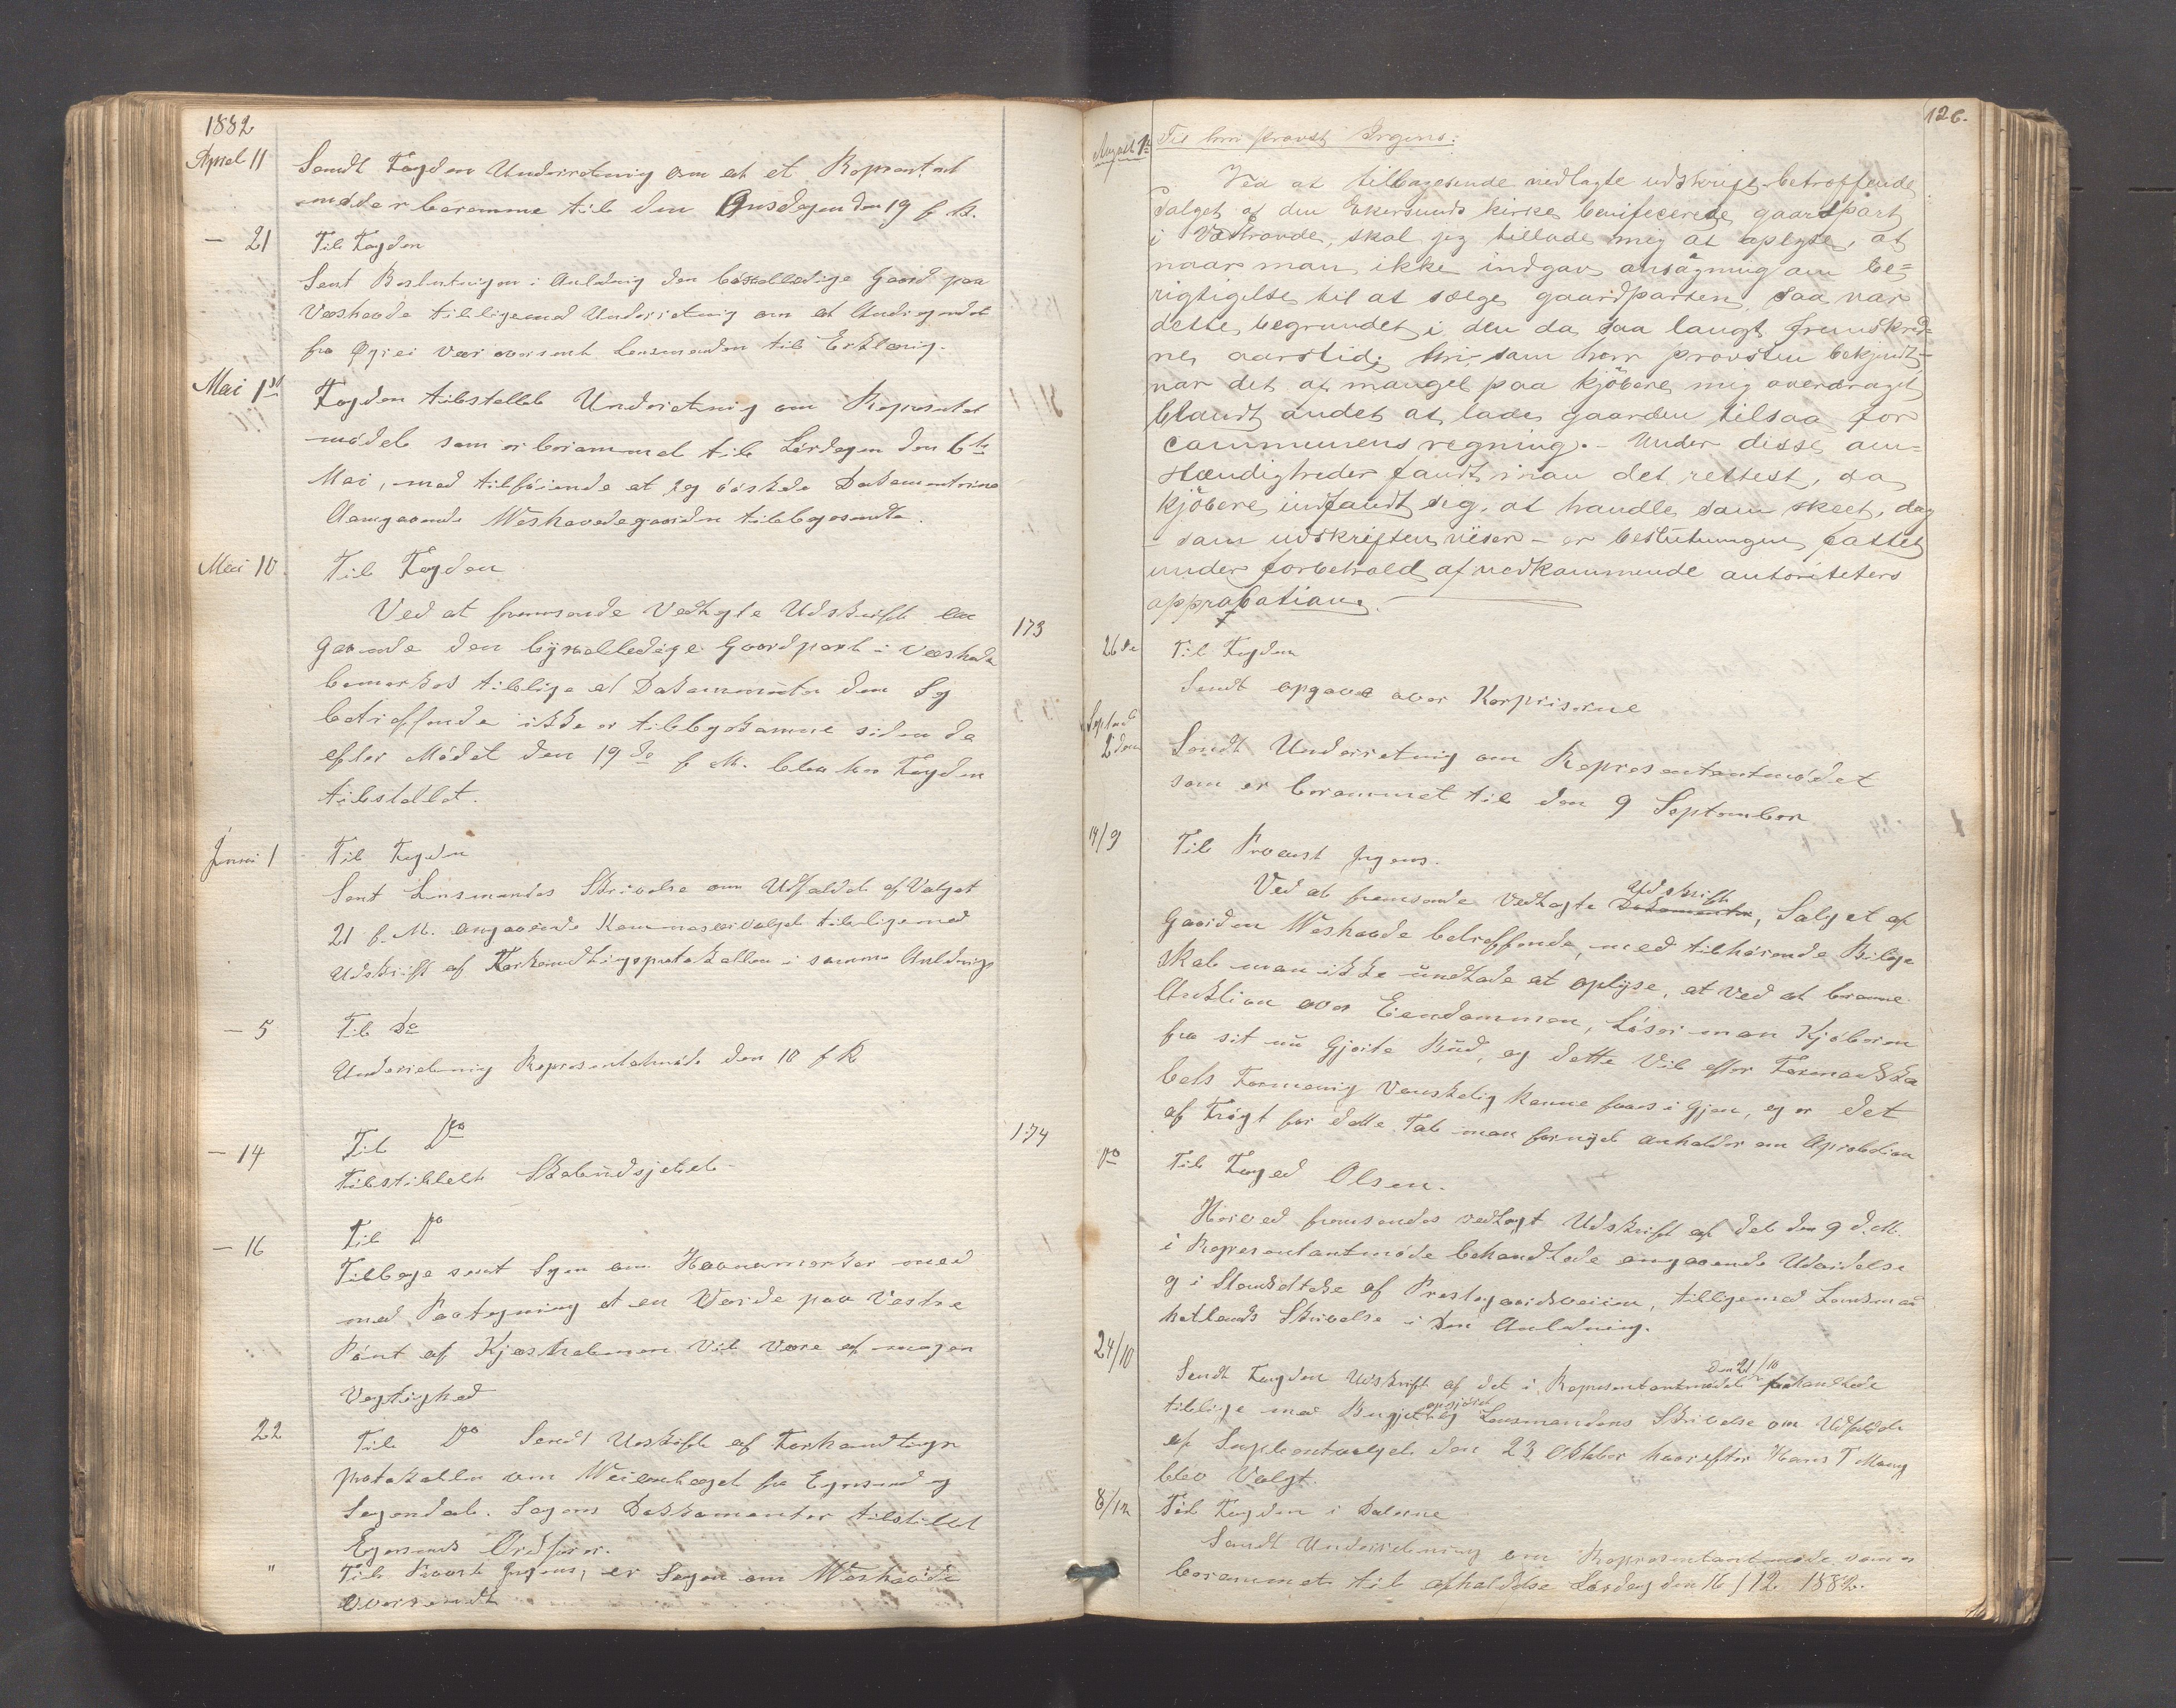 1882
April 11 Sendt Fogden Underretning om at et Represantant
møde er beramme til den Onsdagen den 19 f. M.
– 21 Til Fogden
Sent Beslutnigen i Anledning den beneficerede Gaard paa
Væshovde tilligemed Underretning om at Andragendet
fra Øgrei var oversent Lensmanden til Erklæring.
Mai 1st Fogden tilstellet Underretning om Represantant
mødet som er berammet til Lördagen den 6te
Mai, med tilföiende at jeg önskede Dokumenterne
Aangaaende Weshovdegaarden tilbagesendte.
Mai 10. Til Fogden
Ved at fremsende Vedlagte Udskrift an
173
gaaende den Gaardpart i Veshovde
bemerkes tillige at Dokumenter den Sag
betreffende ikke er tilbagekomne siden de
efter Mödet den 19de f. M. blev hr Fogden
tilstellet.
Juni 1 Til Fogden
Sent Lensmandes Skrivelse om Udfaldet af Valget
21 f. M. angaaende tilligemed
Udskrift af Forhandlingsprotokollen i samme Anledning
– 5 Til Do
Underretning Represantantmøde den 10 f. M
– 14 Til Do
174
Tilstillelt Skabudsjettet
– 16 Til Do
Tilbage sent Sagen om Havnemerker med
med Paategning at en Varde paa Vestre
Pönt af Kjøsholmen Vil være af megen
Vegtighed
22 Til Do Sendt Udskrift af Forhandlings
protokollen om fra Egersund og
Sogndal. Sagens Dokumenter tilstillet
Egersunds Ordförer.
" Til Provst Irgens, er Sagen om Weshovde
oversendt
126.
August 1ste Til hrr provst Irgens:
Ved at tilbagesende vedlagte udskrift betreffende
Salget af den Ekersunds kirke benificerede gaardspart
i Væshovde, skal jeg tillade mig at oplyse, at
naar man ikke indgav ansøgning om be=
rigtigelse til at sælge gaardparten, saa var
dette begrundet i den da saa langt fremskred=
ne aarstid; thi, som herr provsten bekjendt –
var det af mangel paa kjöbere mig overdraget
blandt andet at lade gaarden tilsaa for
communens regning. – Under disse om=
stændigheder fandt man det rettest, da
kjöbere indfandt sig, at handle som skeet, dog
– som udskriften viser – er beslutningen fattet
under forbehold af vedkommende autoriteters
approbation.
26de Til Fogden
Sendt opgave over Kornpriserne
Septmb
2den Sendt Underretning om Representantmödet
som er berammet til den 9 September
14/9 Til Provst Irgens.
Ved at fremsende Vedlagte Dokumenter Udskrift, Salget af
Gaarden Weshovde betreffende, med tilhörende Bilage
skal man ikke undlade at oplyse, at ved at beramme
Auktion over Eiendommen, löser man Kjöberen
fra sit nu gjorte Bud, og dette Vil efter Formandska
bets Formening Vanskelig kunne faaes i gjen, og er det
af Frögt for dette Tab man fornyet anholder om Aprobation
Do Til Foged Olsen.
Herved fremsendes vedlagt Udskrift af det den 9 d. M.
i Representantmøde behandlede angaaende Udvidelse
og i Standsettelse af Prestegaardsveien, tilligemed Lensmand
Hetlands Skrivelse i den Anledning.
24/10 Sendt Fogden Udskrift af det i Representantmødet den 21/10 behandlede
tillige med Bugjettet og Lensmandens Skrivelse om Udfaldet
af Suplentvalget den 23 Oktober hvorefter Hans T
blev Valgt.
8/12 Til Fogden i Dalerne
Sendt Underretning om Representantmøde som er
berammet til afholdelse Lördag den 16/12 1882.